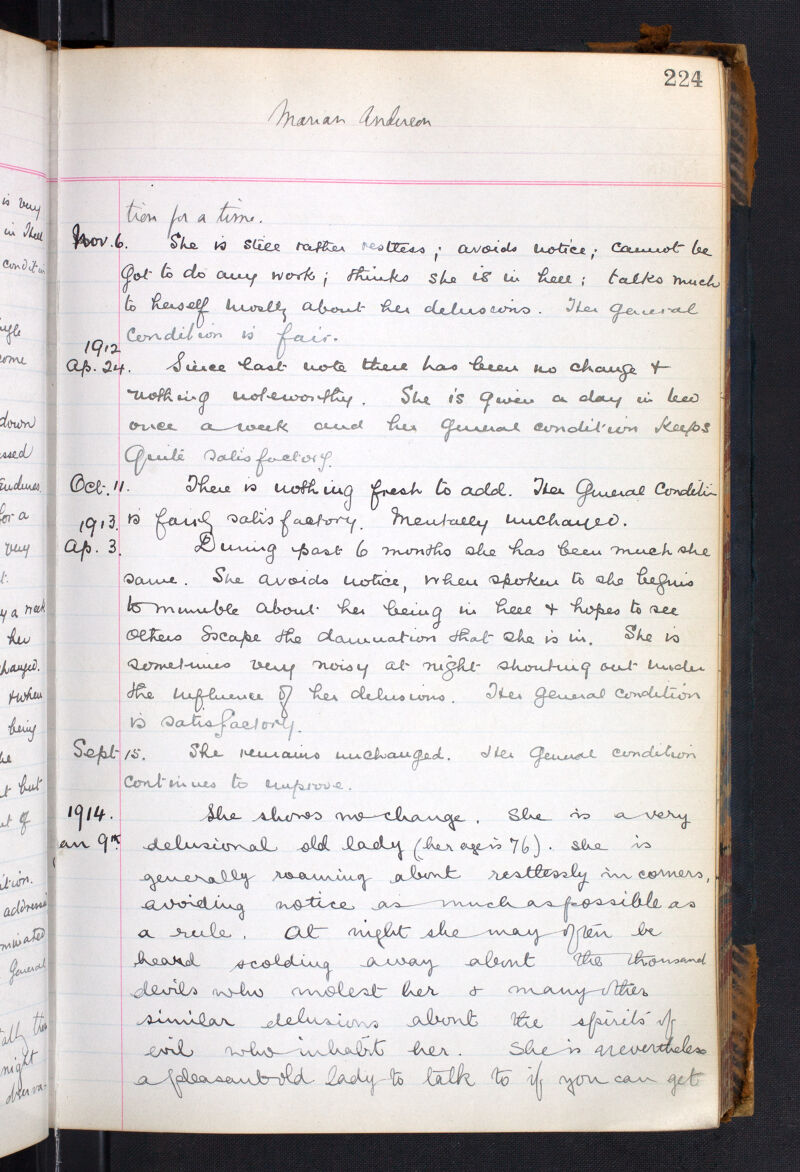 224
Marian Anderson
tion for a time.
Nov. 6. She is still rather restless; avoids notice; cannot be
got to do any work; thinks she is in hell; talks much
to herself mostly about her delusions. Her general
condition is fair.
1912
Ap. 24. Since last note there has been no change &
nothing noteworthy. She is given a day in bed
once a week and her general condition keeps
quite satisfactory.
Oct. 11. There is nothing fresh to add. Her General Condition
is fairly satisfactory. Mentally unchanged.
1913.
Ap. 3. During past 6 months she has been much the
same. She avoids notice, when spoken to she begins
to mumble about her being in hell & hopes to see
others escape the damnation that she is in. She is
sometimes very noisy at night shouting out under
the influence of her delusions. Her general condition
is satisfactory.
Sept 15. She remains unchanged. Her general condition
continues to improve.
1914. She shows no change. She is a very
an 9th delusional old lady (her age is 76). she is
generally roaming about restlessly in corners,
avoiding notice as much as possible as
a rule. At night she may often be
heard scolding away about the thousand
devils who molest her & many other
similar delusions about the spirits of
evil who inhabit her. She is nevertheless
a pleasant old lady to talk to if you can get
is very
in Hell
condition
ome
down
ssed
for a
very
y a week
her
hanged.
& when
being
he
t but
et of
ition.
addressed
General
night